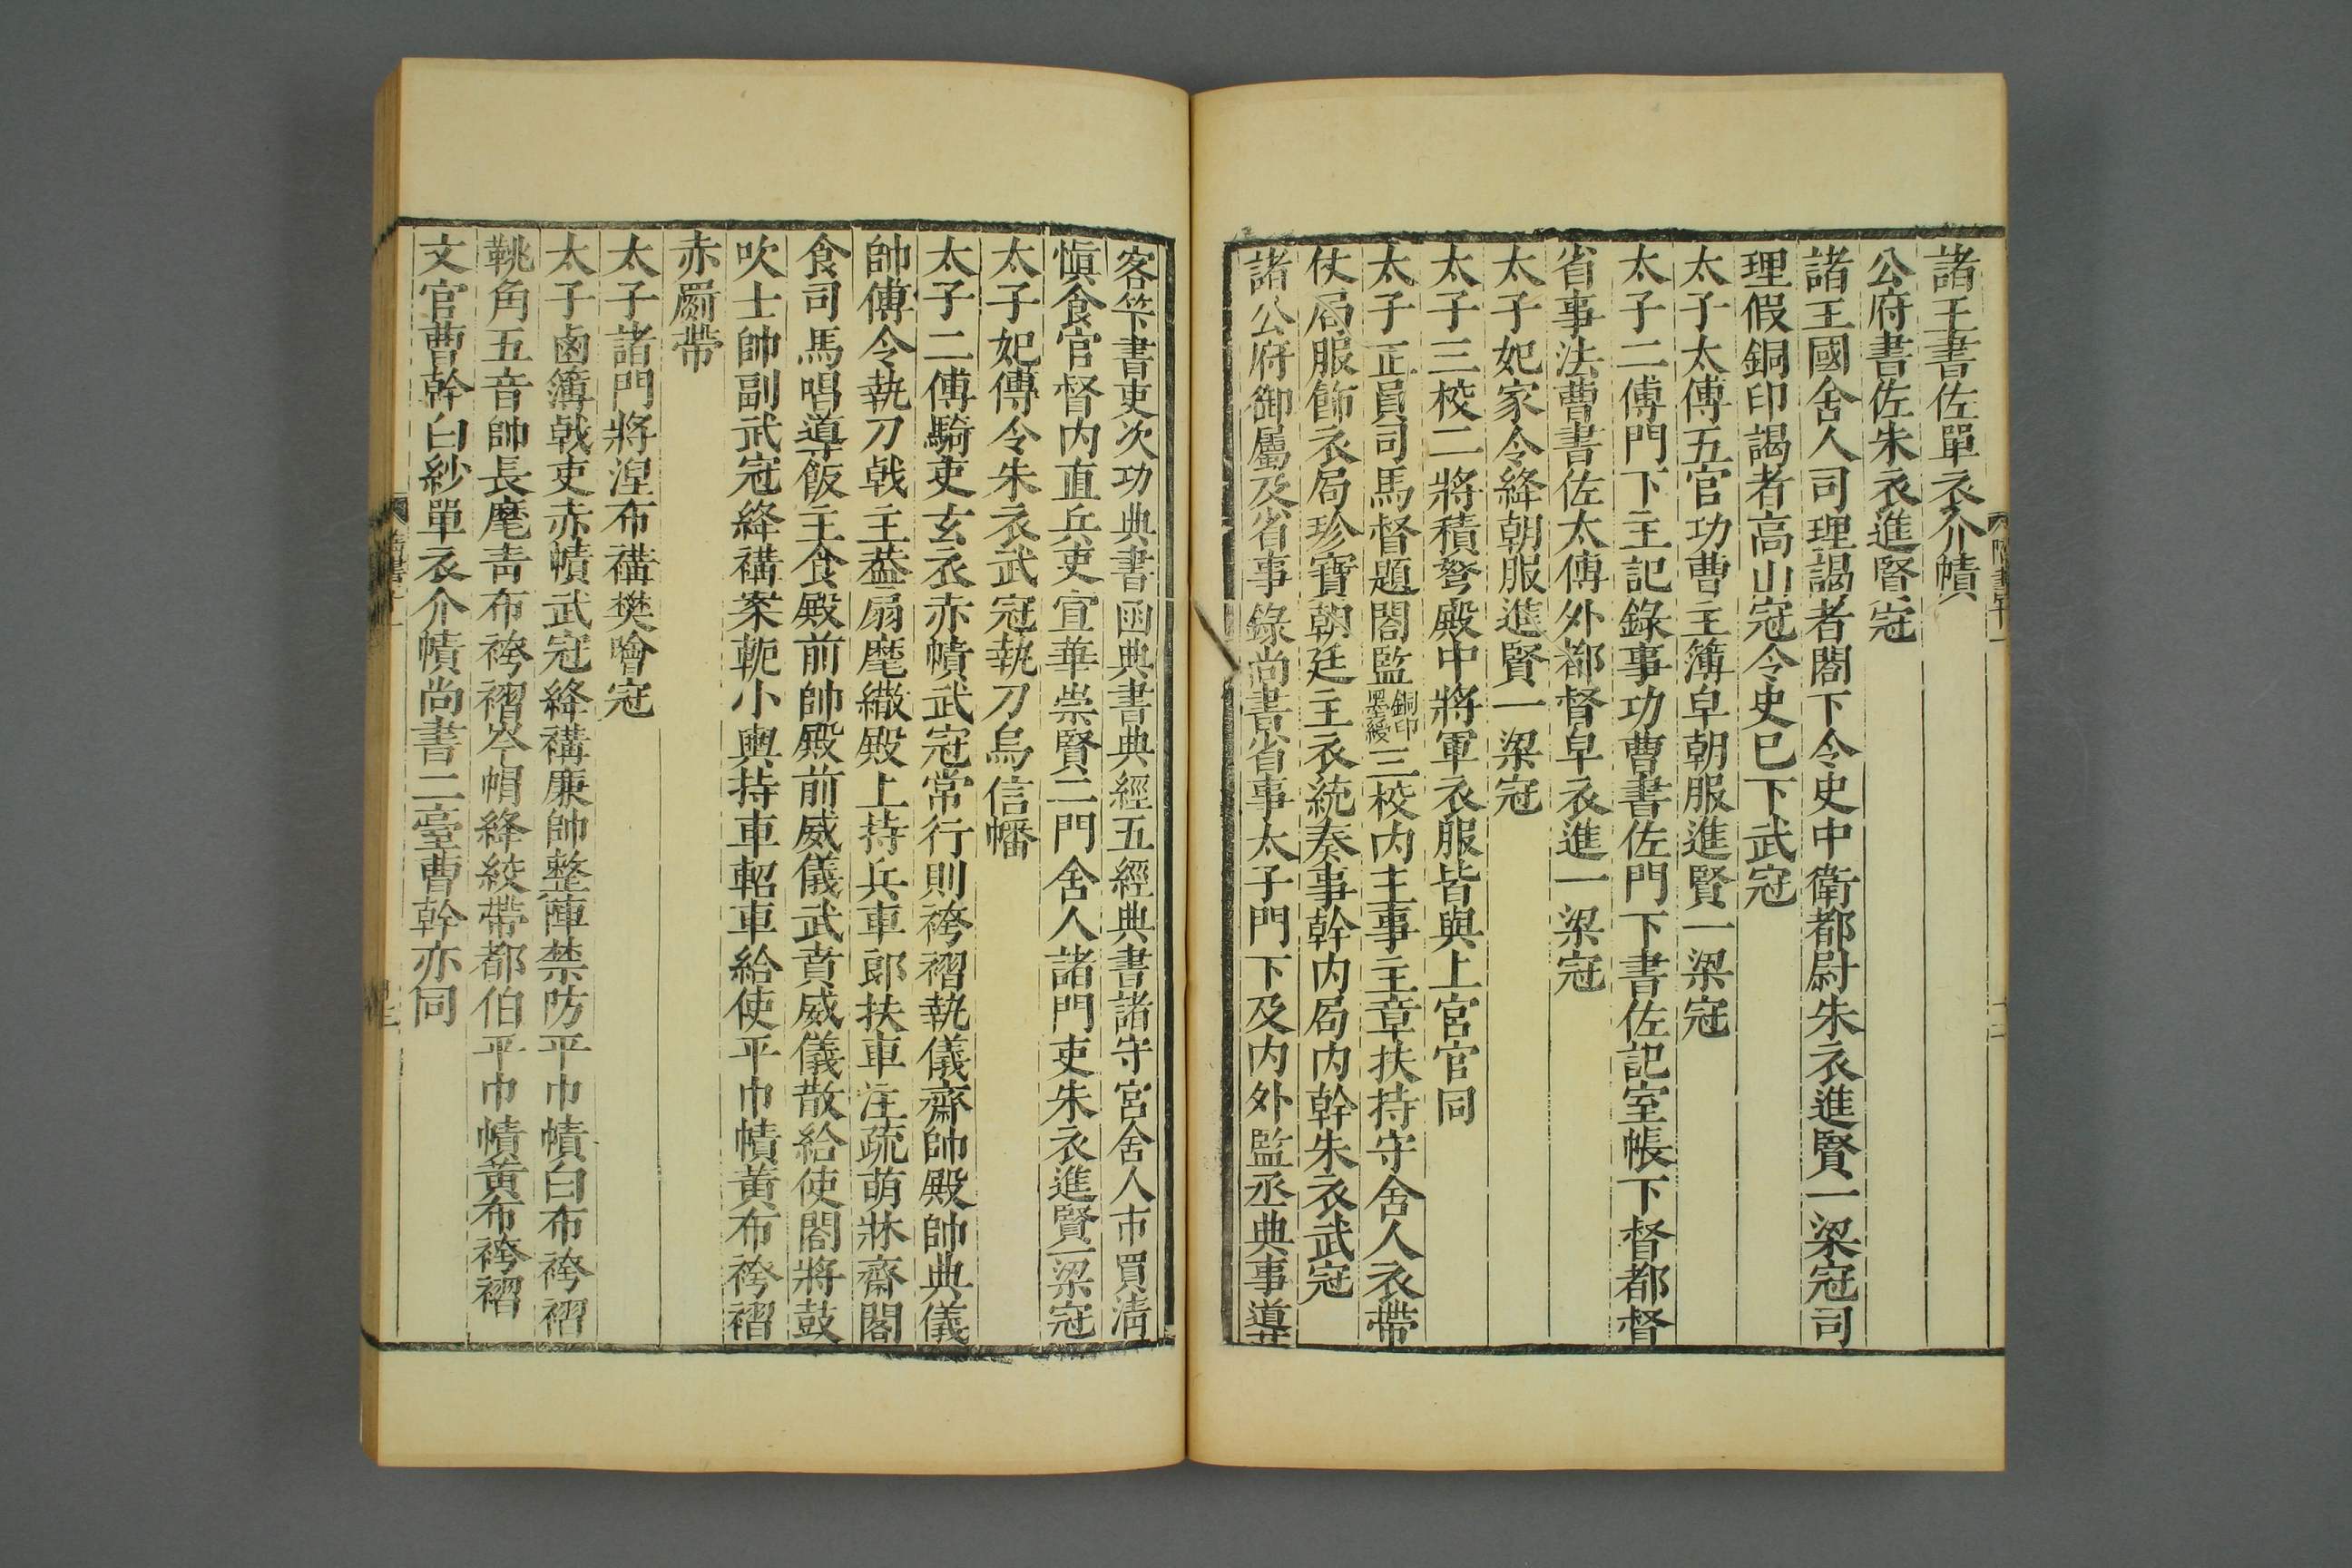 諸王書佐單衣介幘
公府書佐朱衣進賢冠
諸王國舍人司理謁者閤下令史中衛都尉朱衣進賢一梁冠司
理假銅印謁者高山冠令史已下武冠
太子太傅五官功曹主簿皁朝服進賢一梁冠
太子二傅門下主記錄事功曹書佐門下書佐記室帳下督都督
省事法曹書佐太傅外都督皁衣進一梁冠
太子妃家令絳朝服進賢一梁冠
太子三校二將積弩殿中將軍衣服皆與上宮官同
太子正員司馬督題閤監銅印墨綬三校內主事主章扶持守舍人衣帶
仗局服飾衣局珍寶朝廷主衣統奏事幹內局內幹朱衣武冠
諸公府御屬及省事錄尚書省事太子門下及內外監丞典事導
客筭書吏次功典書函典書典經五經典書諸守宮舍人市買清
愼食官督內直兵吏宣華崇賢二門舍人諸門吏朱衣進賢一梁冠
太子妃傳令朱衣武冠執刀烏信幡
太子二傅騎吏玄衣赤幘武冠常行則袴褶執儀齋帥殿帥典儀
帥傅令執刀戟主葢扇麾繖殿上持兵車郎扶車注疏萌牀齋閤
食司馬唱導飯主食殿前帥殿前威儀武賁威儀散給使閤將鼓
吹士帥副武冠絳褠案軛小輿持車軺車給使平巾幘黃布袴褶
赤罽帶
太子諸門將涅布褠樊噲冠
太子鹵簿戟吏赤幘武冠絳褠廉帥整陣禁防平巾幘白布袴褶
鞉角五音帥長麾靑布袴褶岑帽絳絞帶都伯平巾幘黃布袴褶
文官曹幹白紗單衣介幘尚書二臺曹幹亦同